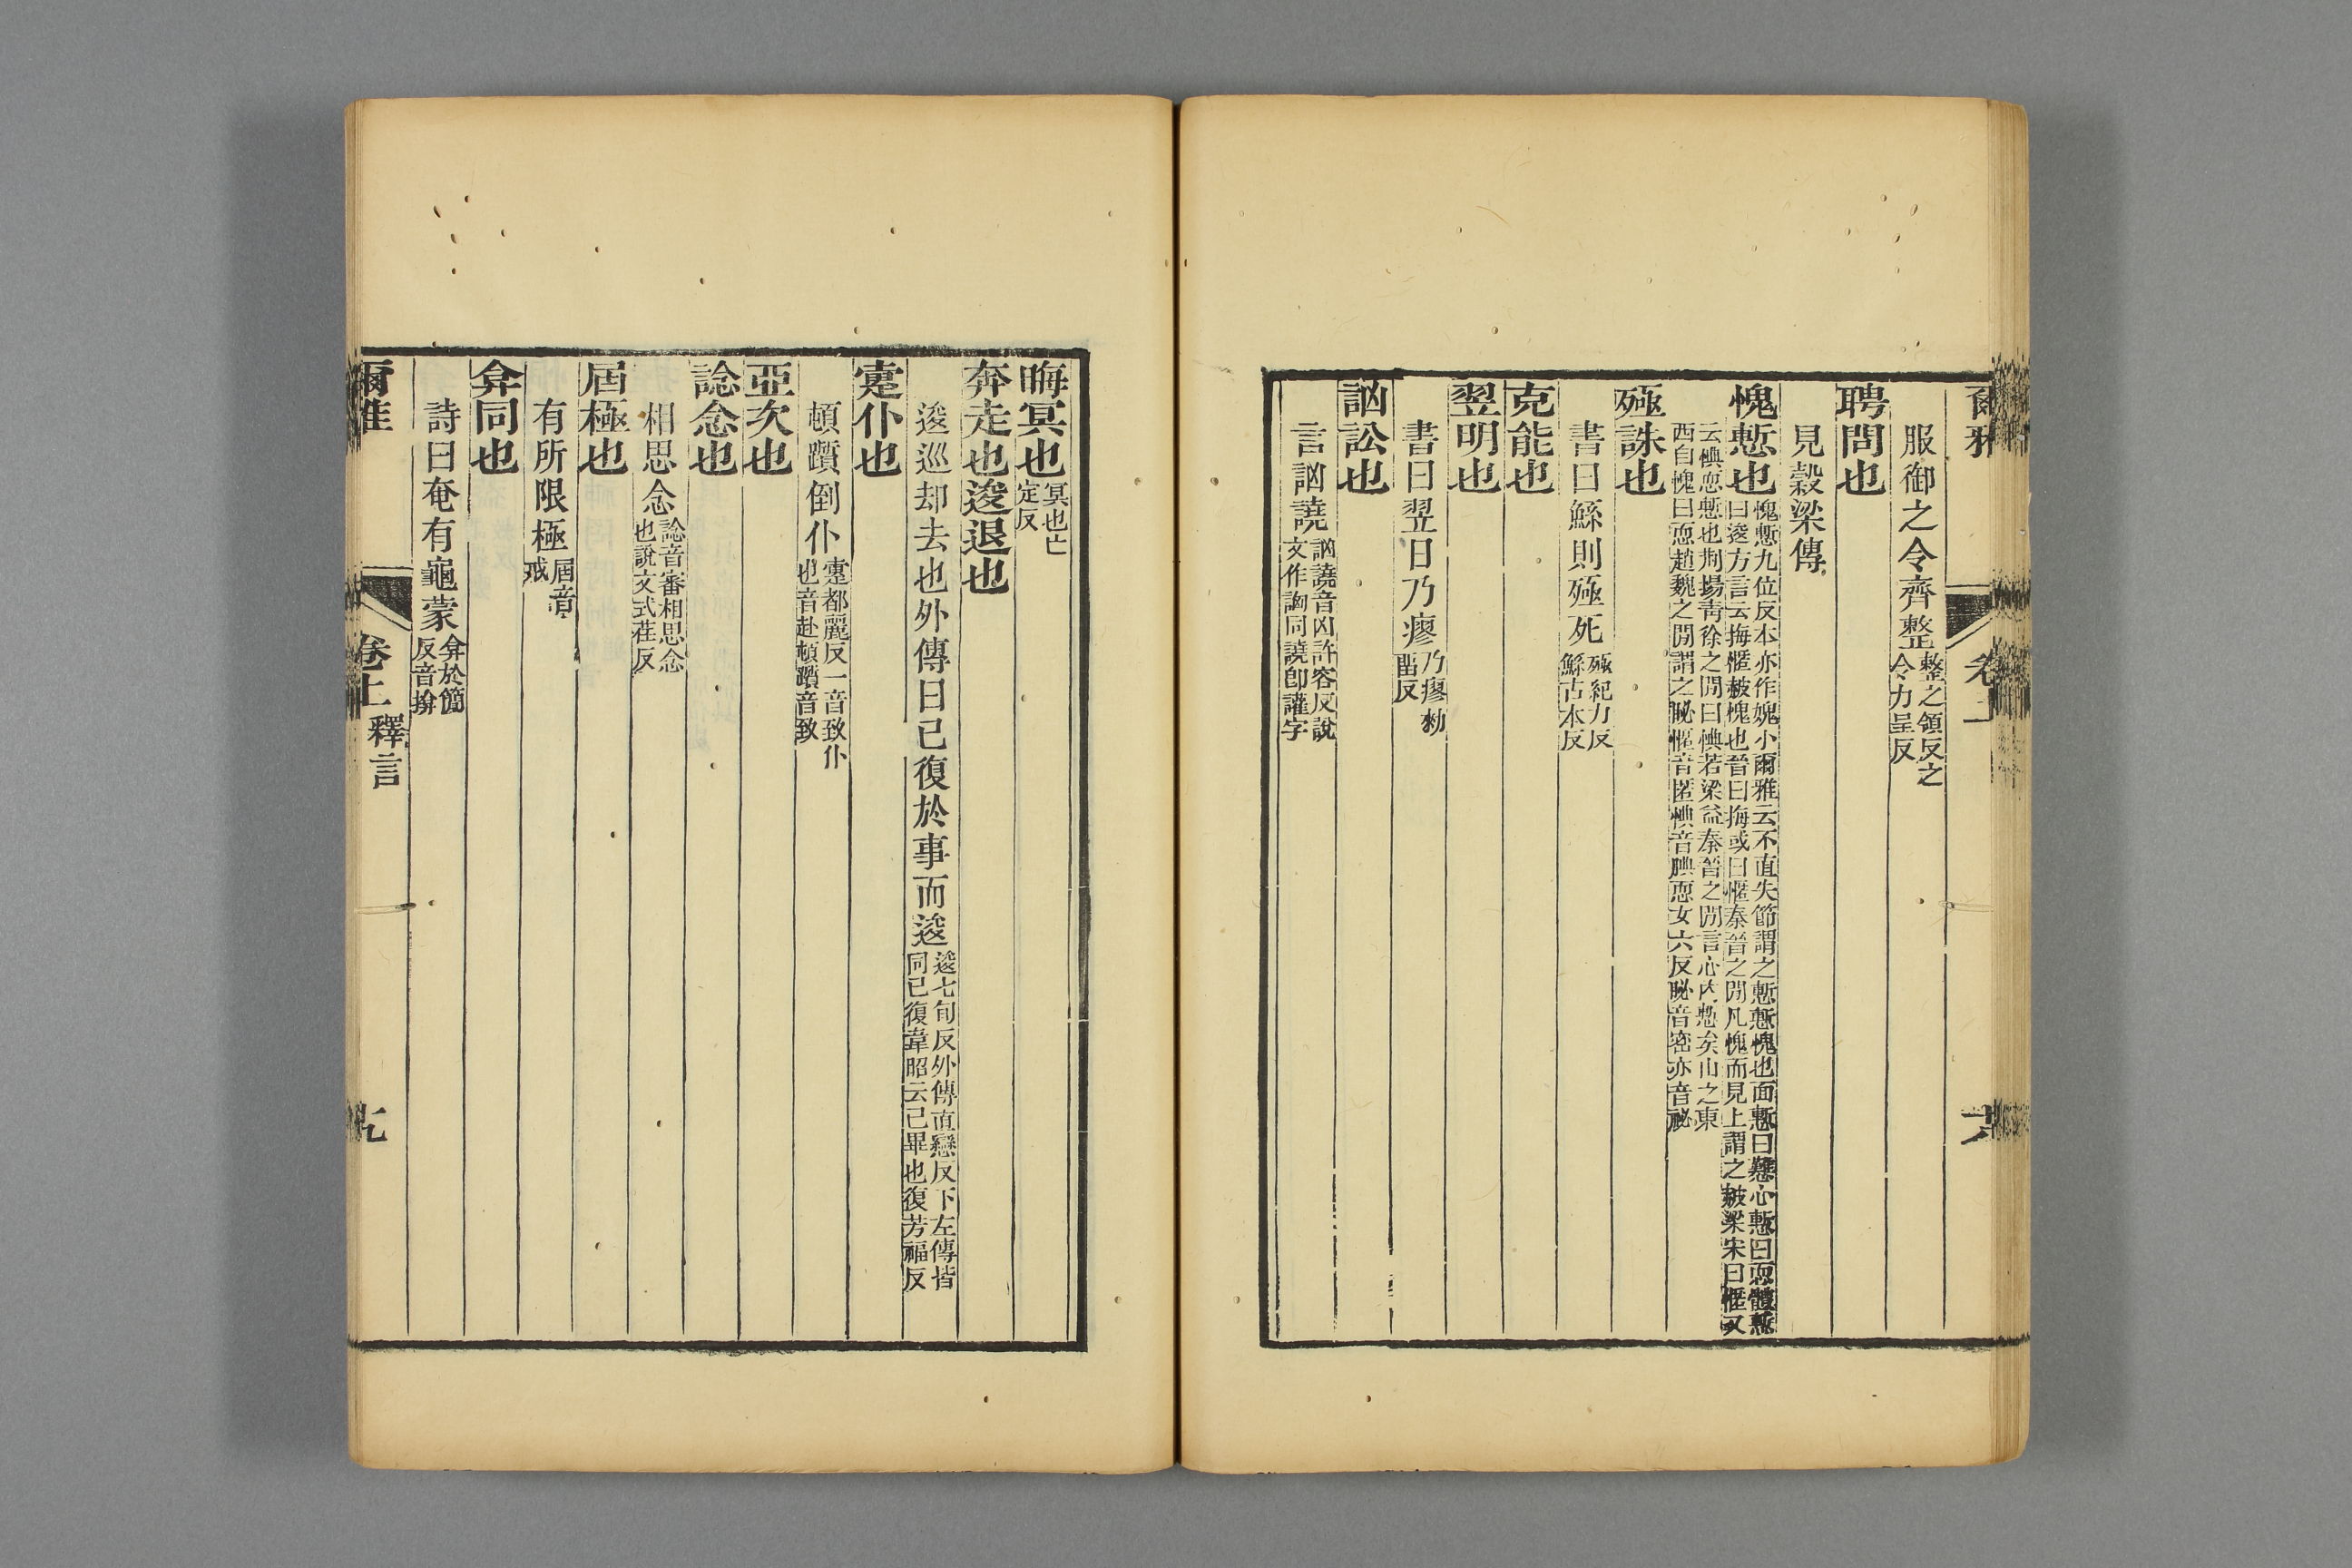 爾雅 卷上 六
服御之令齊整整之領反之令力呈反
聘問也
見穀梁傳
愧慙也愧慙九位反本亦作媿小爾雅云不直失節謂之慙慙愧也面慙曰戁心慙曰恧體慙曰逡方言云挴㥾赧愧也晉曰挴或曰㥾秦晉之閒凡愧而見上謂之赧梁宋曰㥾又
云㥏恧慙也荆揚青徐之閒曰㥏若梁益秦晉之閒言心内慙矣山之東西自愧曰恧趙魏之閒謂之䏟㥾音匿㥏音腆恧女六反䏟音密亦音祕
殛誅也
書曰鯀則殛死殛紀力反鯀古本反
克能也
翌明也
書曰翌日乃瘳乃瘳勑畱反
訩訟也
言訩譊訩譊音凶許容反說文作詾同譊卽讙字
晦冥也冥也亡定反
奔走也逡退也
逡巡却去也外傳曰已復於事而逡逡七旬反外傳直戀反下左傳皆同已復韋昭云已畢也復芳福反
疐仆也
頓躓倒仆疐都麗反一音致仆也音赴頓躓音致
亞次也
諗念也
相思念諗音審相思念也說文式荏反
屆極也
有所限極屆音戒
弇同也
詩曰奄有龜蒙弇於簡反音揜
爾雅 卷上 釋言 七